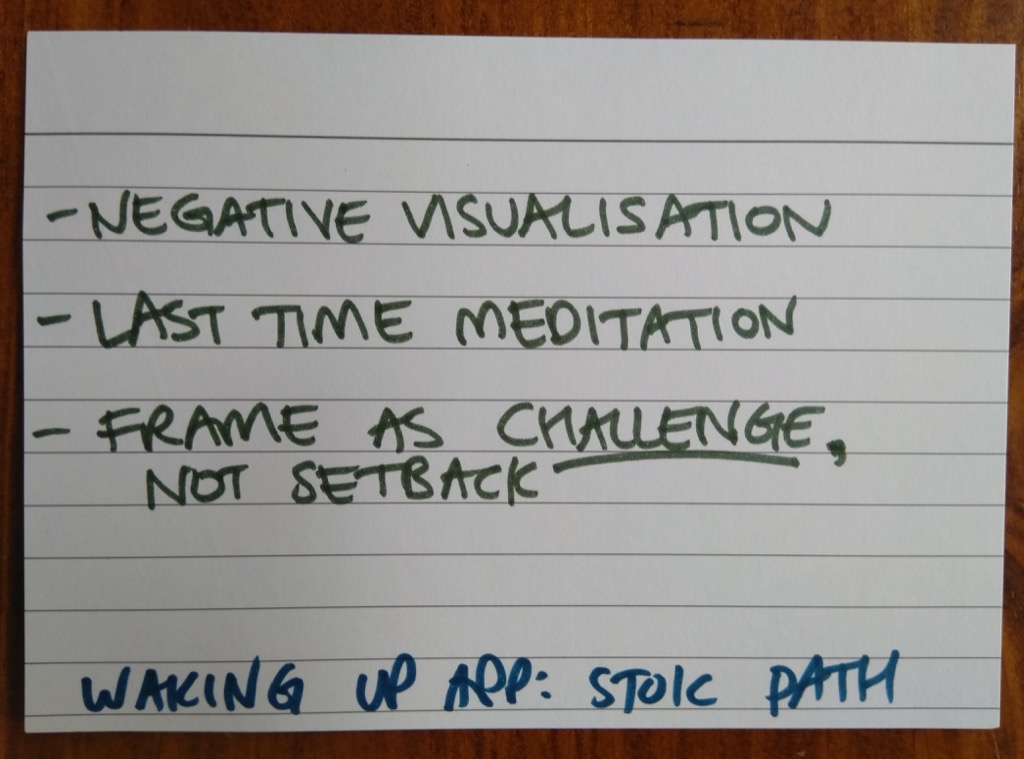 - NEGATIVE VISUALISATION
- LAST TIME MEDITATION
- FRAME AS CHALLENGE,
NOT SETBACK
WAKING UP APP: STOIC PATH